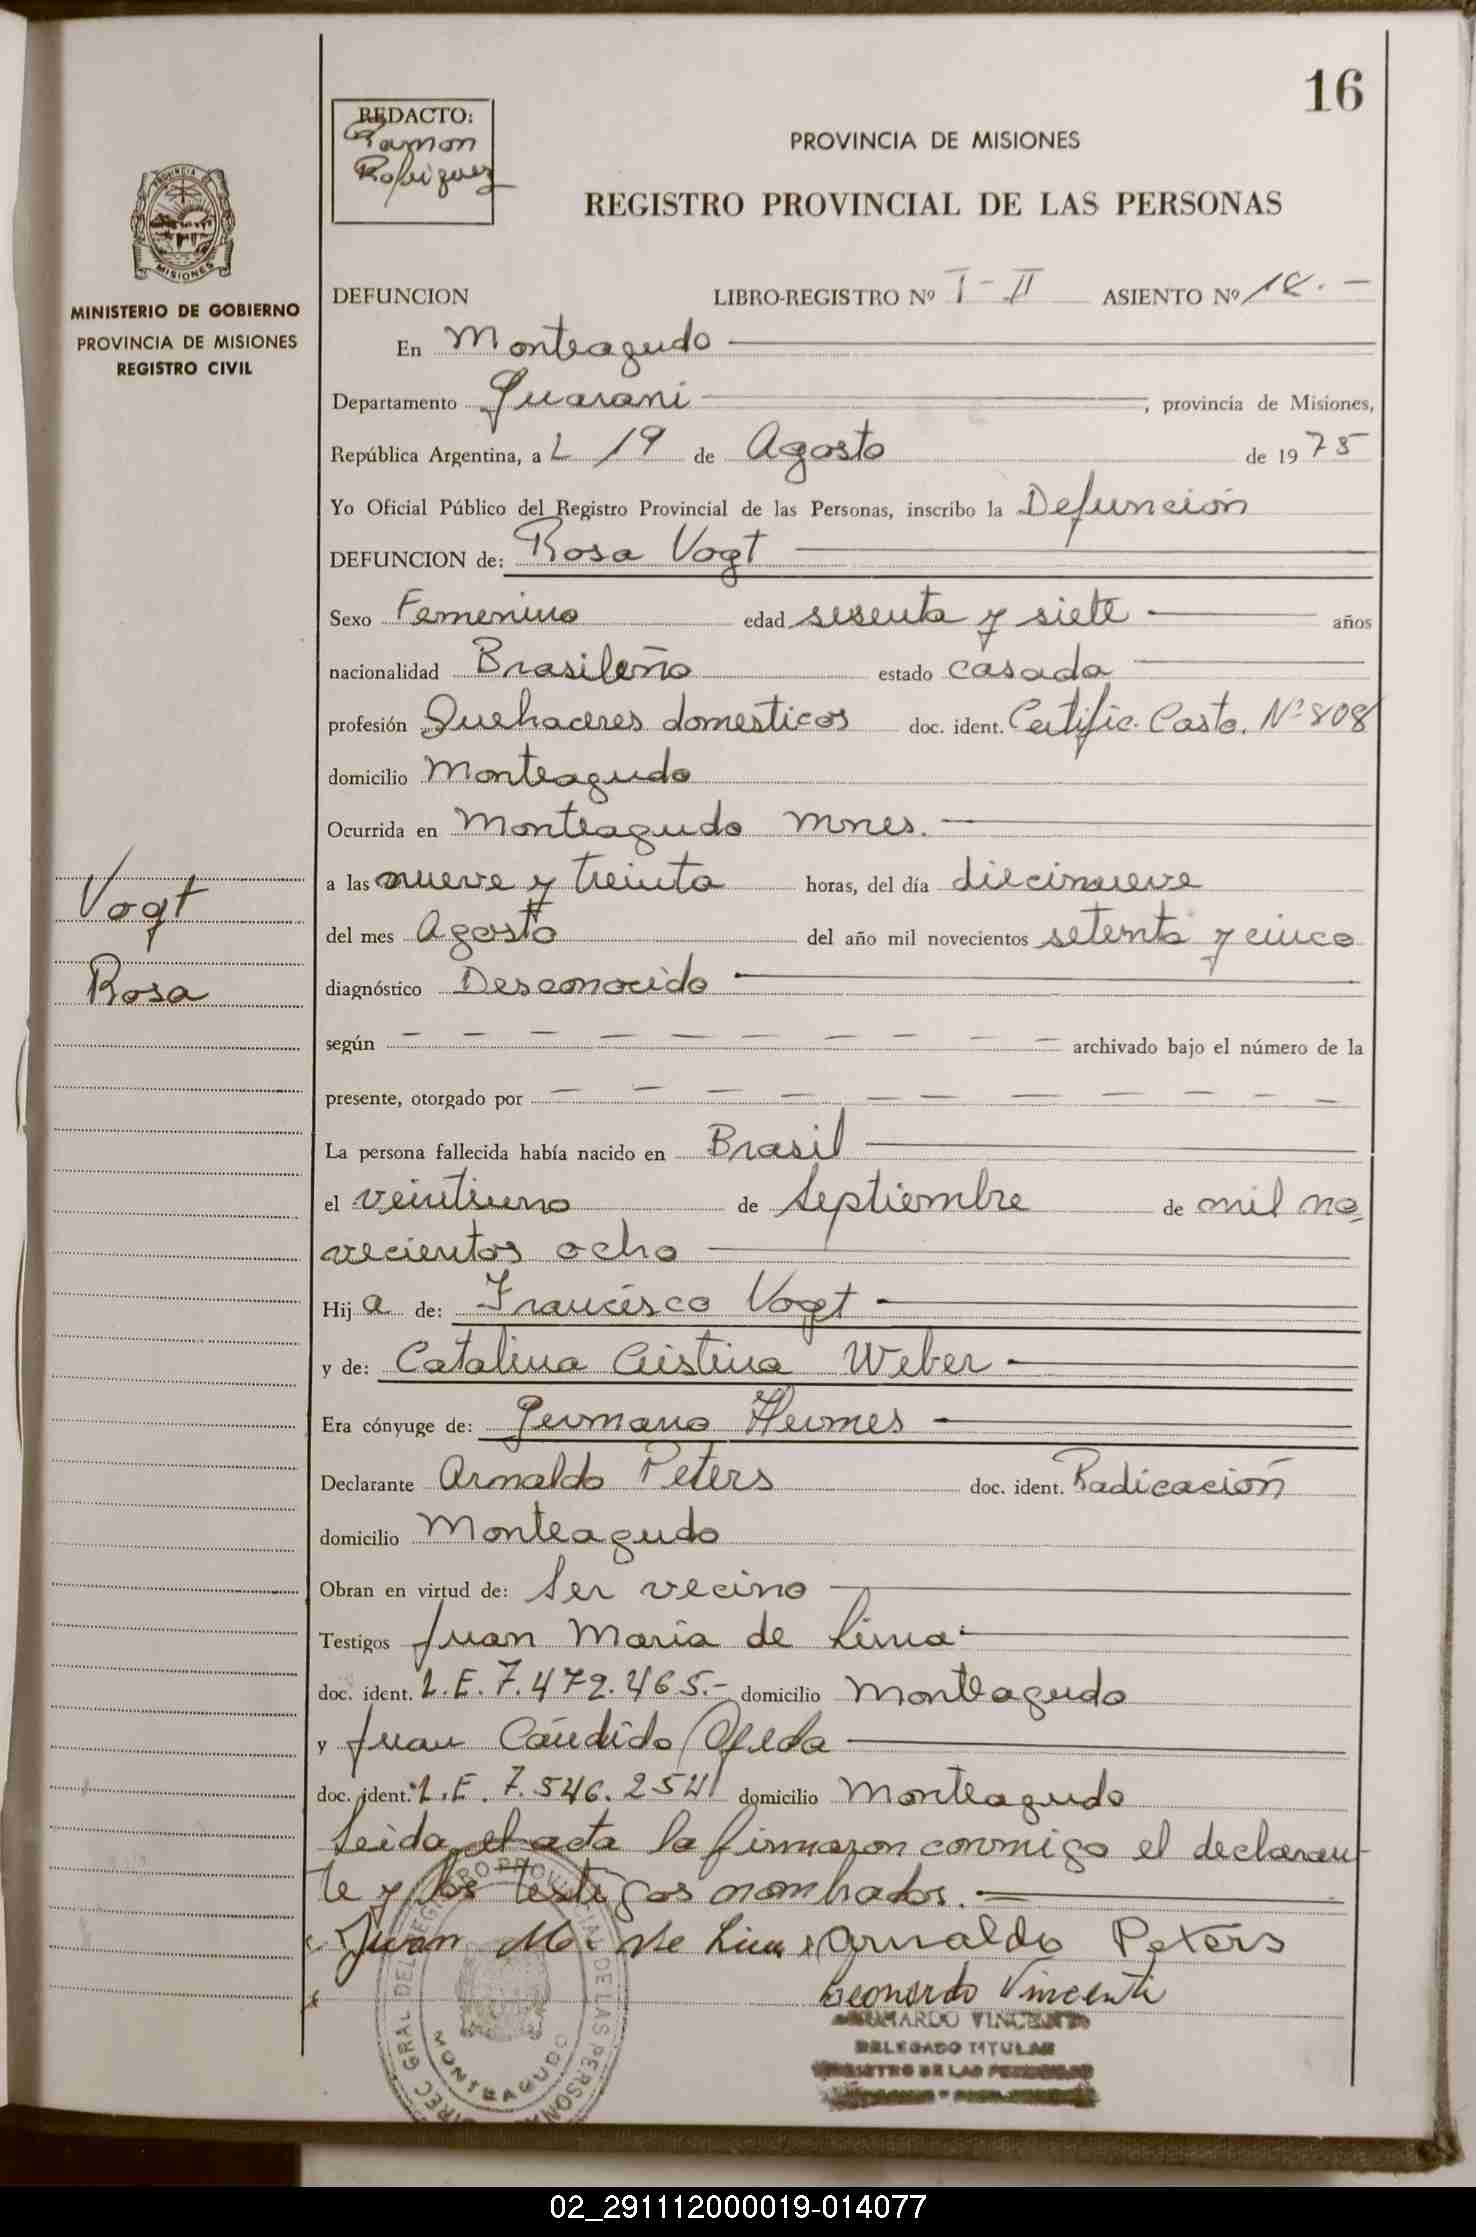 16
REDACTO:
Ramon
Rodriguez
PROVINCIA DE MISIONES
REGISTRO PROVINCIAL DE LAS PERSONAS
PROVINCIA DE
MISIONES
MINISTERIO DE GOBIERNO
PROVINCIA DE MISIONES
REGISTRO CIVIL
DEFUNCION LIBRO-REGISTRO Nº I - II ASIENTO Nº
En Monteagudo
Departamento Guarani, provincia de Misiones,
República Argentina, a L 19 de Agosto de 1975
Yo Oficial Público del Registro Provincial de las Personas, inscribo la Defunción
DEFUNCION de: Rosa Vogt
Sexo Femenino edad sesenta y siete años
nacionalidad Brasileño estado casada
profesión Quehaceres domesticos doc. ident. Certific. Casto. Nº 808
domicilio Monteagudo
Ocurrida en Monteagudo Mnes.
a las nueve y treinta horas, del día diecinueve
del mes Agosto del año mil novecientos setenta y cinco
diagnóstico Desconocido
según - - - - - - - - - archivado bajo el número de la
presente, otorgado por - - - - - - - - - -
La persona fallecida había nacido en Brasil
el veintiuno de Septiembre de mil no
vecientos ocho
Hija de: Francisco Vogt
y de: Catalina Cristina Weber
Era cónyuge de: Germano Hermes
Declarante Arnaldo Peters doc. ident. Radicación
domicilio Monteagudo
Obran en virtud de: Ser vecino
Testigos Juan Maria de Lima
doc. ident. L.E. 7.472.465.- domicilio Monteagudo
y Juan Cándido Ojeda
doc. ident. L.E. 7.546.254 domicilio Monteagudo
Leida el acta la firmaron conmigo el declaran-
te y los testigos nombrados.
Juan M. de Lima Arnaldo Peters
Leonardo Vincenti
LEONARDO VINCENTI
DELEGADO TITULAR
REGISTRO DE LAS PERSONAS
Vogt
Rosa
DIREC GRAL DEL REGISTRO PROVINCIAL DE LAS PERSONAS
MONTEAGUDO
02_291112000019-014077